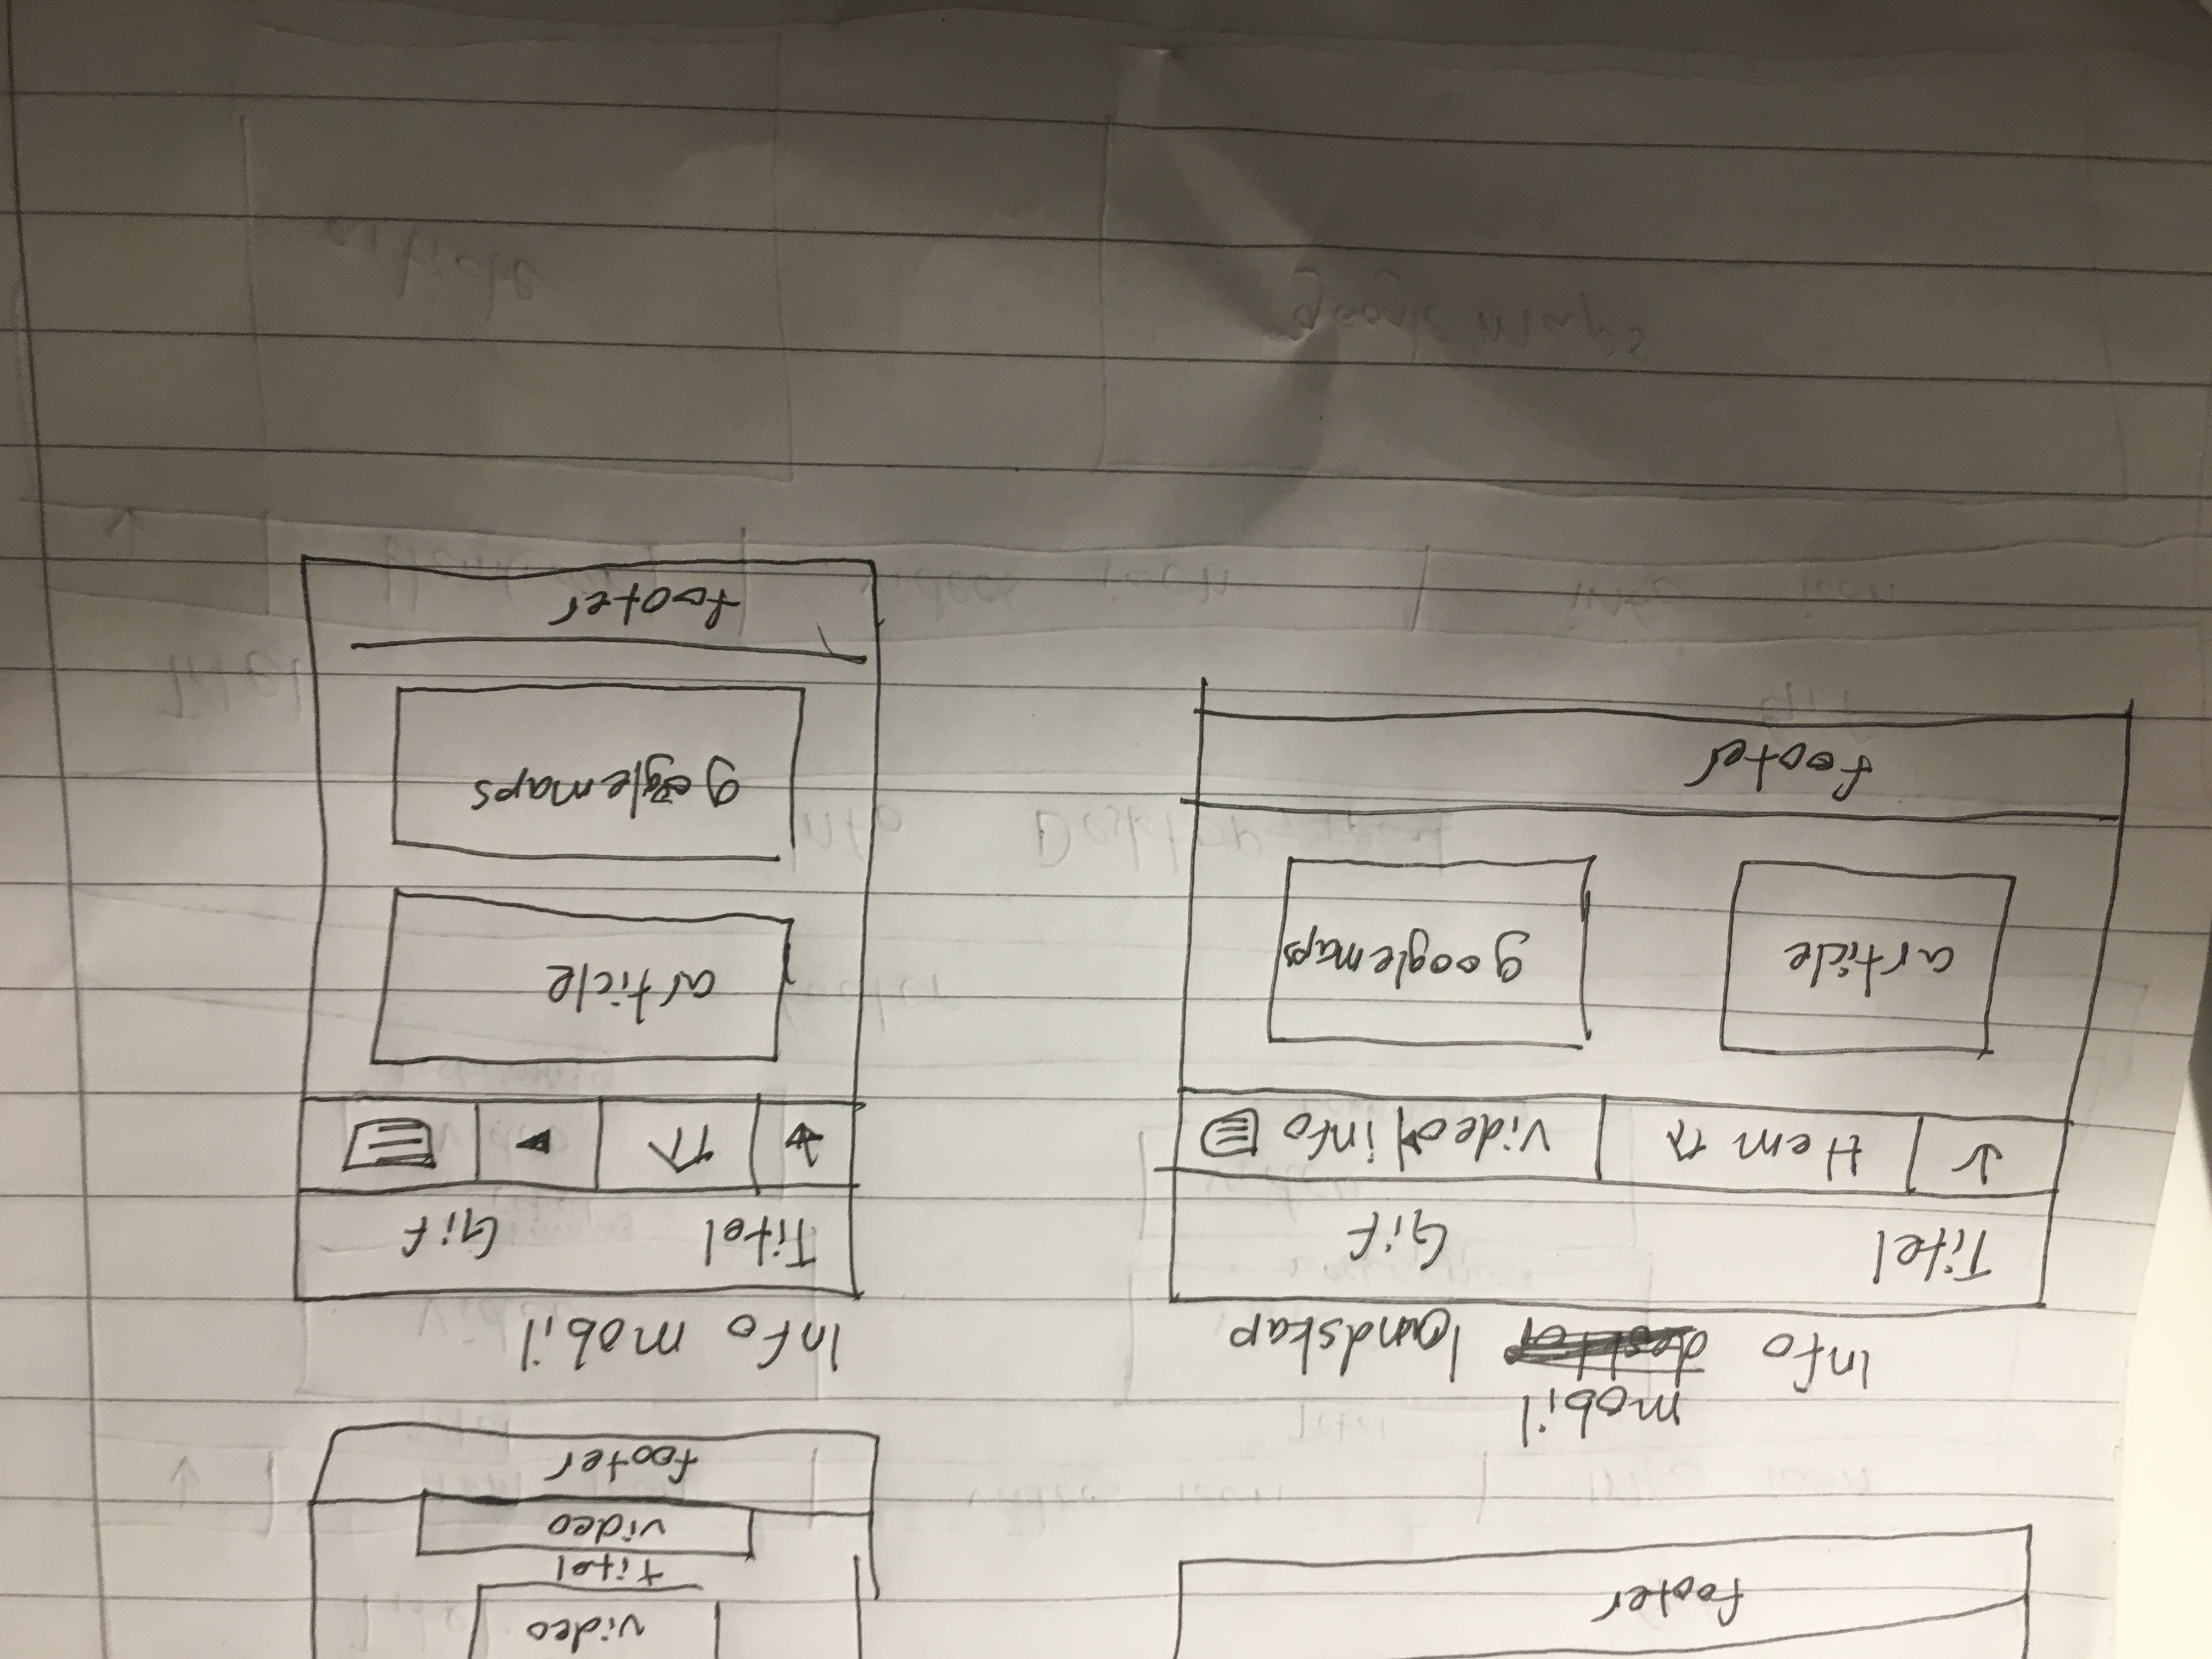 footer
video
Titel
video
footer
mobil
Info desktop landskap
Titel Gif
Hem video info
article googlemaps
footer
Info mobil
Titel Gif
article
googlemaps
footer